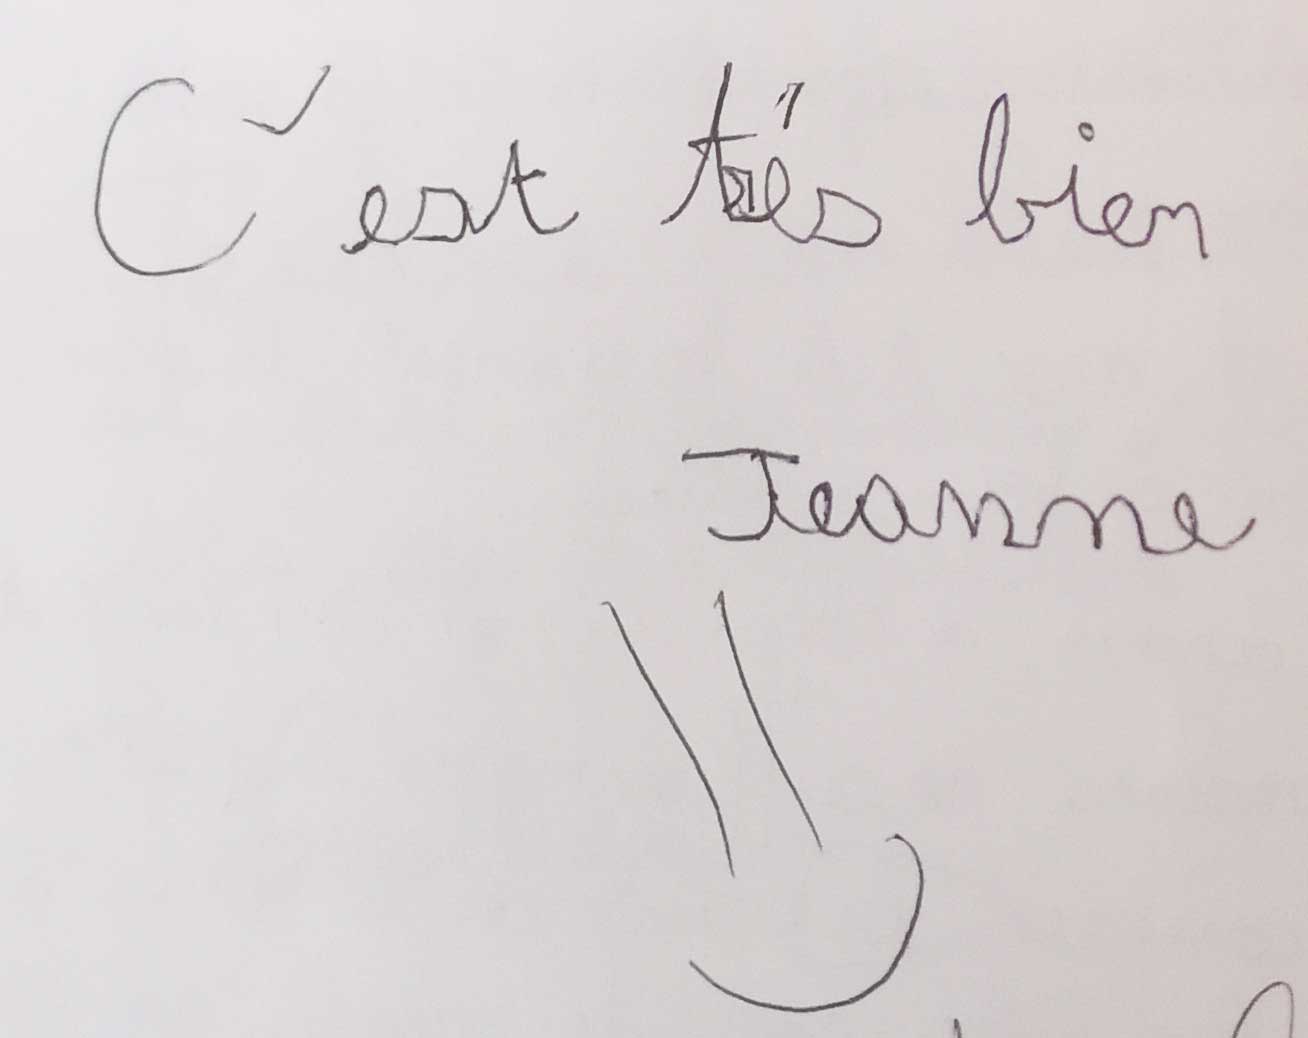 C'est trés bien
Jeanne